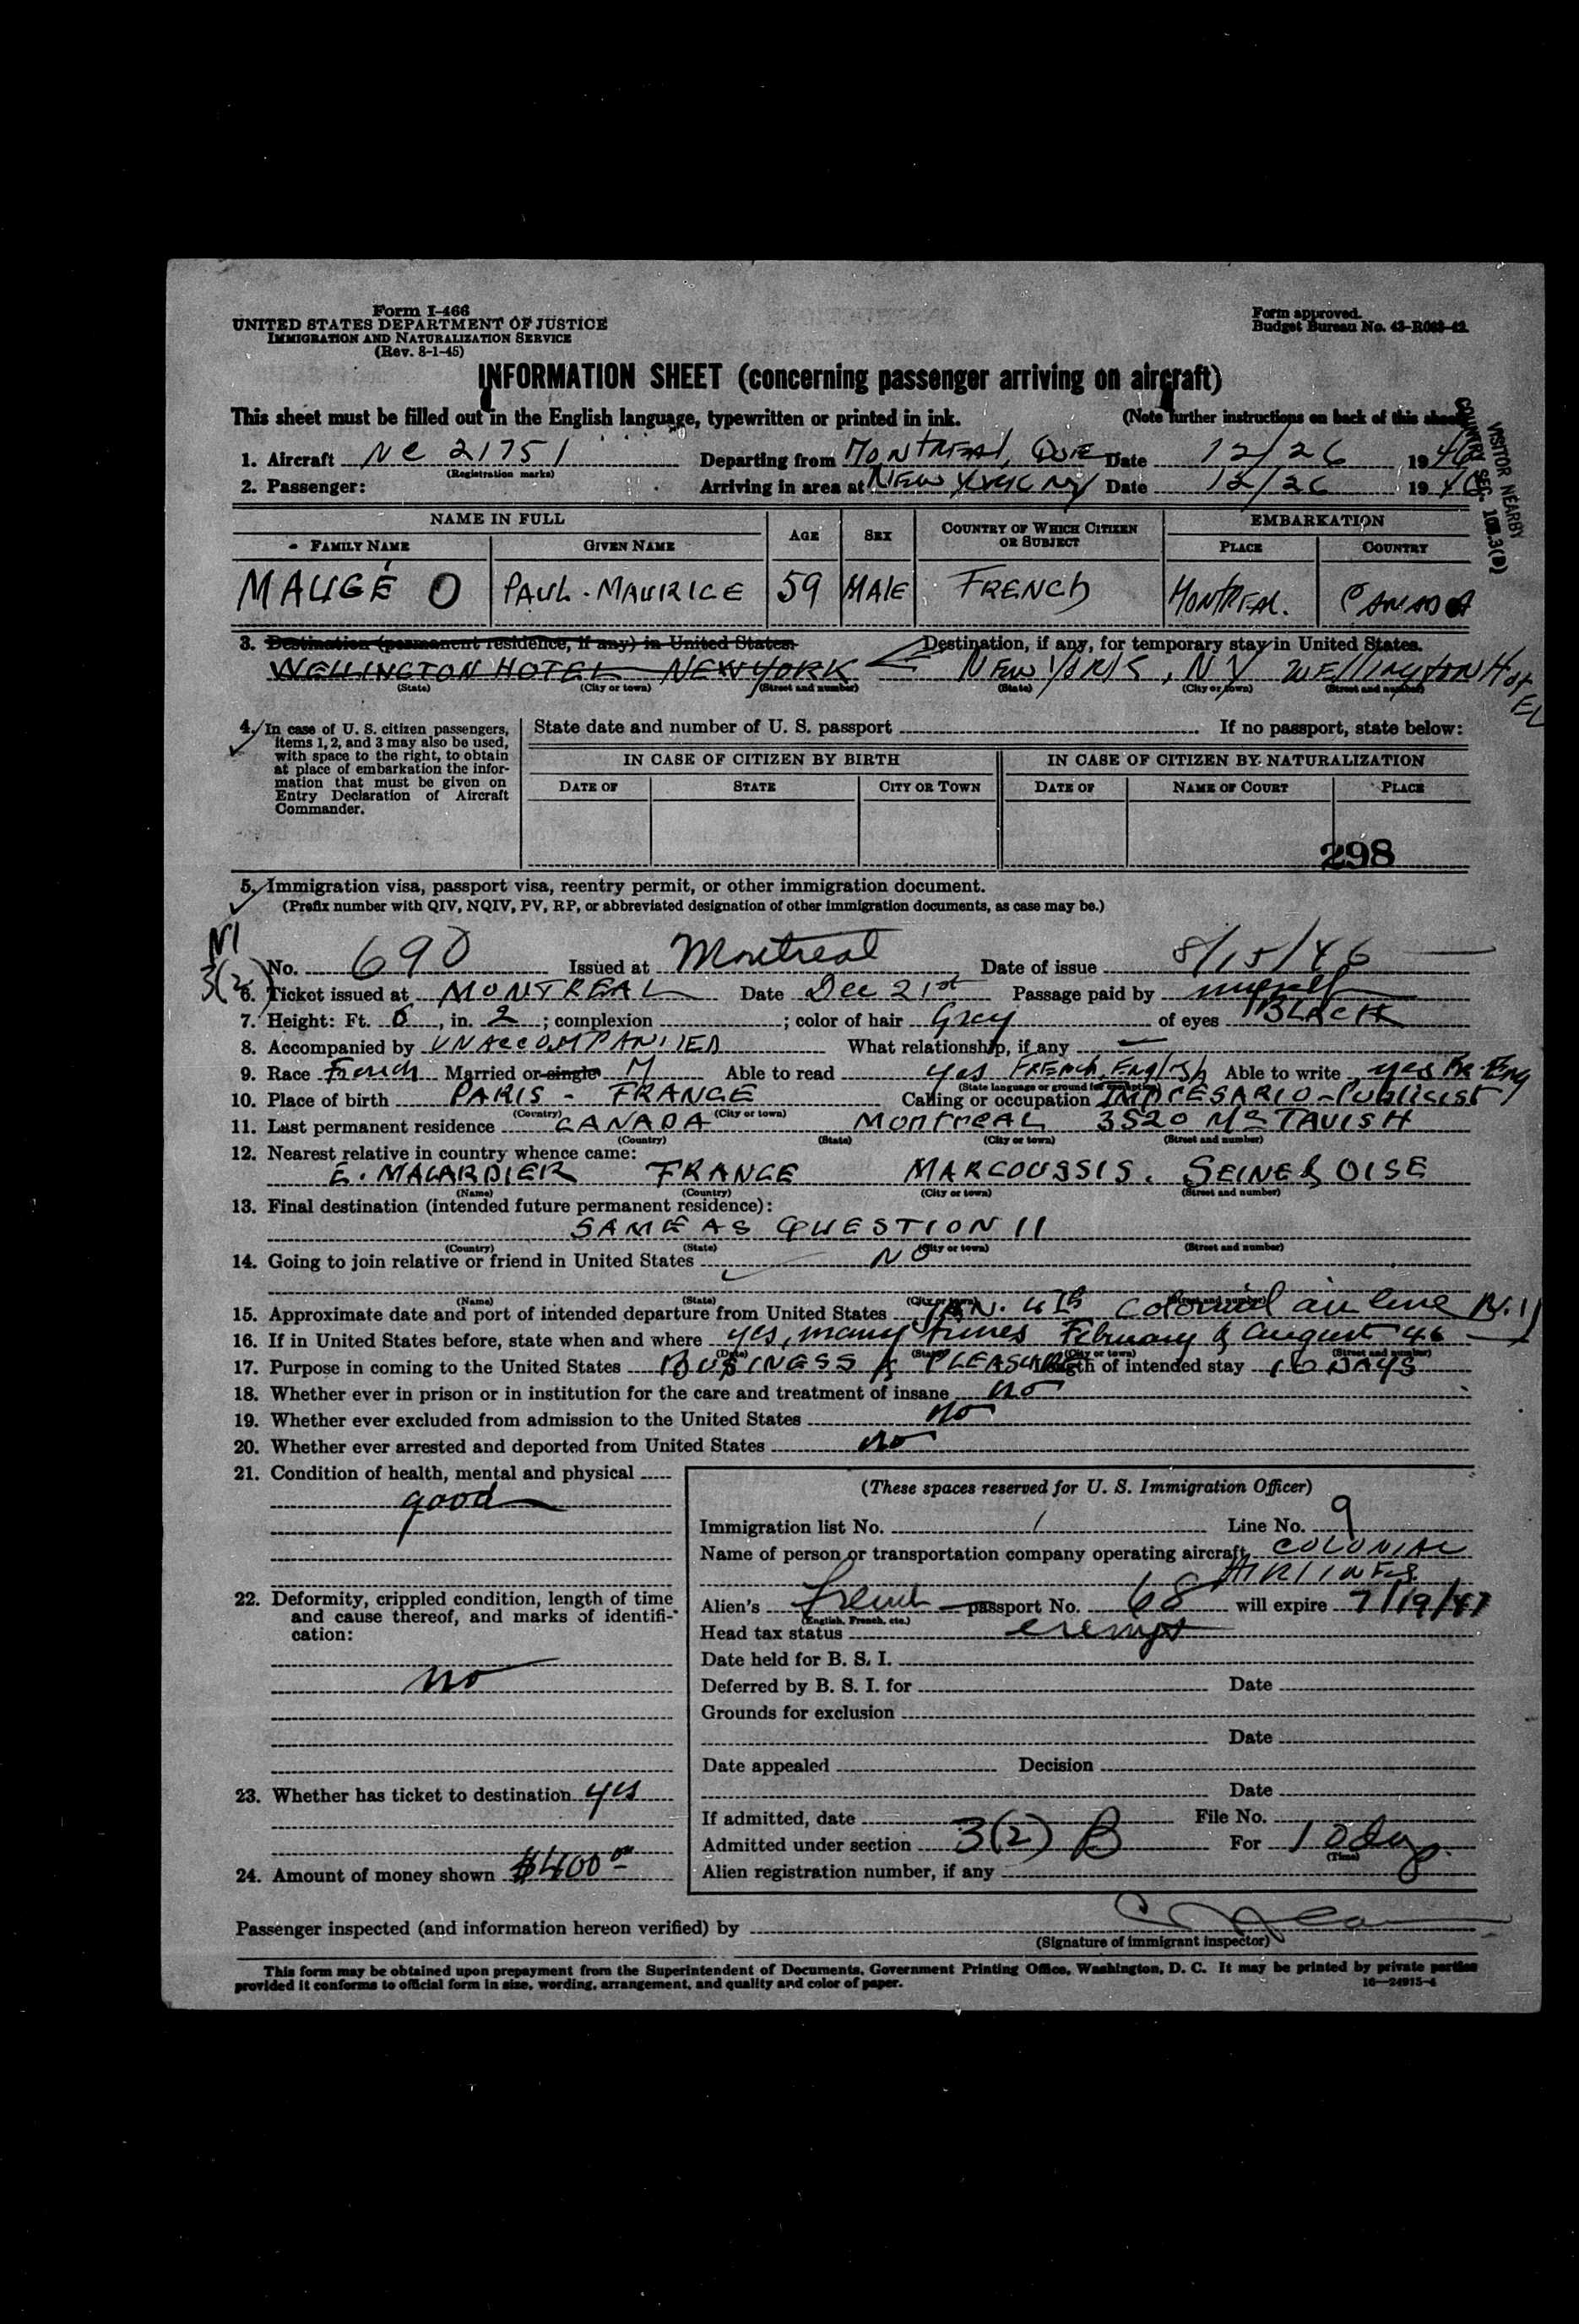 Form I-466
UNITED STATES DEPARTMENT OF JUSTICE
IMMIGRATION AND NATURALIZATION SERVICE
(Rev. 8-1-45)
Form approved.
Budget Bureau No.
INFORMATION SHEET (concerning passenger arriving on aircraft)
This sheet must be filled out in the English language, typewritten or printed in ink. (Note further instructions on back of this sheet)
VISITOR NEARBY
COUNTRY SEC.
1. Aircraft NC 21751 Departing from MONTREAL, QUE Date 12/26 1946
(Registration marks)
2. Passenger: Arriving in area at NEW YORK NY Date 12/26 1946
NAME IN FULL AGE SEX COUNTRY OF WHICH CITIZEN OR SUBJECT EMBARKATION
FAMILY NAME GIVEN NAME PLACE COUNTRY
MAUGÉ O PAUL-MAURICE 59 MALE FRENCH MONTREAL. CANADA
3. Destination (permanent residence, if any) in United States. Destination, if any, for temporary stay in United States.
WELLINGTON HOTEL NEW YORK NEW YORK, NY WELLINGTON HOTEL
(State) (City or town) (Street and number) (State) (City or town) (Street and number)
4. In case of U. S. citizen passengers, items 1, 2, and 3 may also be used, with space to the right, to obtain at place of embarkation the information that must be given on Entry Declaration of Aircraft Commander.
State date and number of U. S. passport If no passport, state below:
IN CASE OF CITIZEN BY BIRTH IN CASE OF CITIZEN BY NATURALIZATION
DATE OF STATE CITY OR TOWN DATE OF NAME OF COURT PLACE
298
5. Immigration visa, passport visa, reentry permit, or other immigration document.
(Prefix number with QIV, NQIV, PV, RP, or abbreviated designation of other immigration documents, as case may be.)
3(2)
No. 690 Issued at Montreal Date of issue 8/15/46
6. Ticket issued at MONTREAL Date Dec 21st Passage paid by myself
7. Height: Ft. 5, in. 2; complexion ; color of hair Grey of eyes BLACK
8. Accompanied by UNACCOMPANIED What relationship, if any —
9. Race French Married or single M Able to read yes FRENCH, English Able to write yes Fr-Eng
(State language or ground for exemption)
10. Place of birth PARIS - FRANCE Calling or occupation IMPRESARIO-Publicist
(Country) (City or town)
11. Last permanent residence CANADA MONTREAL 3520 Mc TAVISH
(Country) (State) (City or town) (Street and number)
12. Nearest relative in country whence came:
E. MALARDIER FRANCE MARCOUSSIS. SEINE & OISE
(Name) (Country) (City or town) (Street and number)
13. Final destination (intended future permanent residence):
SAME AS QUESTION 11
(Country) (State) (City or town) (Street and number)
14. Going to join relative or friend in United States NO
(Name) (State) (City or town) (Street and number)
15. Approximate date and port of intended departure from United States JAN. 4th Colonial air line N.Y
16. If in United States before, state when and where yes, many times February & August 46
(Date) (State) (City or town) (Street and number)
17. Purpose in coming to the United States BUSINESS & PLEASURE Length of intended stay 10 DAYS
18. Whether ever in prison or in institution for the care and treatment of insane no
19. Whether ever excluded from admission to the United States no
20. Whether ever arrested and deported from United States no
21. Condition of health, mental and physical
good
22. Deformity, crippled condition, length of time and cause thereof, and marks of identification:
no
23. Whether has ticket to destination yes
24. Amount of money shown $400.00
(These spaces reserved for U. S. Immigration Officer)
Immigration list No. 1 Line No. 9
Name of person or transportation company operating aircraft COLONIAL
AIRLINES
Alien's French passport No. 68 will expire 7/19/47
(English, French, etc.)
Head tax status exempt
Date held for B. S. I.
Deferred by B. S. I. for Date
Grounds for exclusion
Date
Date appealed Decision
Date
If admitted, date File No.
Admitted under section 3(2) B For 10 days
(Time)
Alien registration number, if any
Passenger inspected (and information hereon verified) by
(Signature of immigrant inspector)
This form may be obtained upon prepayment from the Superintendent of Documents, Government Printing Office, Washington, D. C. It may be printed by private parties
provided it conforms to official form in size, wording, arrangement, and quality and color of paper.
16—24915-4